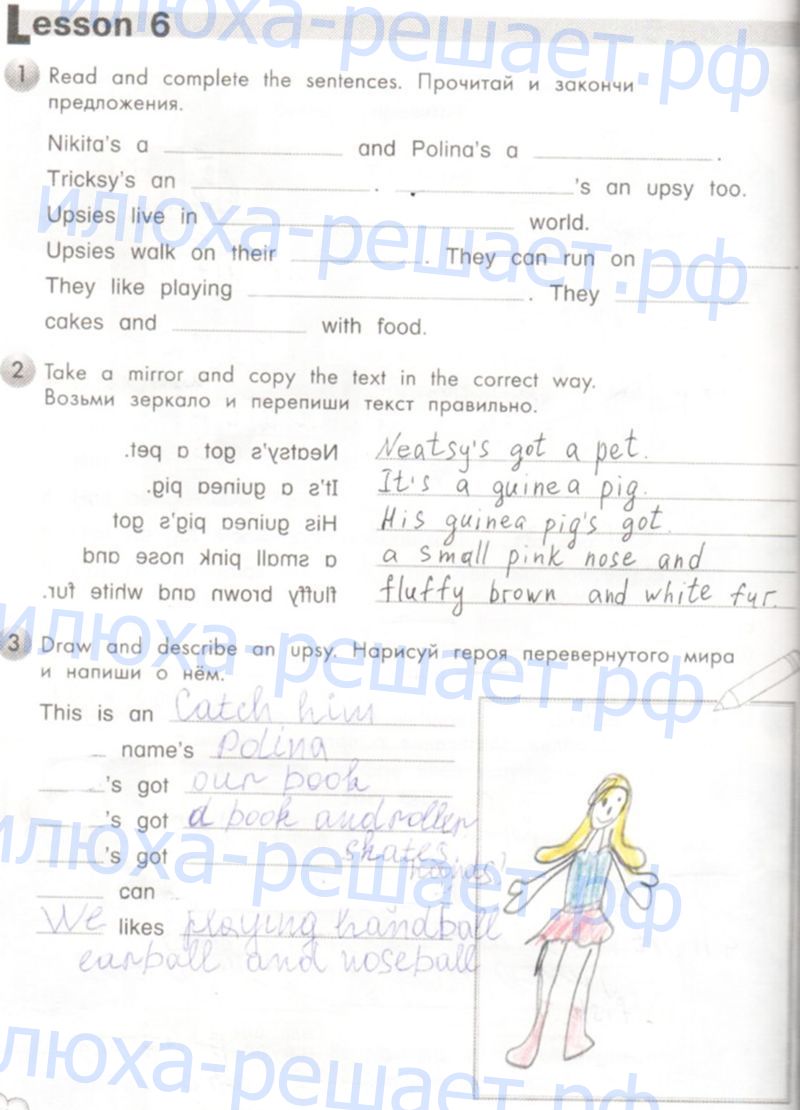 Lesson 6
1 Read and complete the sentences. Прочитай и закончи
предложения.
Nikita's a and Polina's a .
Tricksy's an . 's an upsy too.
Upsies live in world.
Upsies walk on their . They can run on .
They like playing . They
cakes and with food.
2 Take a mirror and copy the text in the correct way.
Возьми зеркало и перепиши текст правильно.
Neatsy's got a pet. Neatsy's got a pet.
It's a guinea pig. It's a guinea pig.
His guinea pig's got His guinea pig's got.
a small pink nose and a small pink nose and
fluffy brown and white fur. fluffy brown and white fur.
3 Draw and describe an upsy. Нарисуй героя перевернутого мира
и напиши о нём.
This is an Catch him
name's Polina
's got our book
's got a book and roller
's got skates.
can
We likes playing handball
earball and noseball
илюха-решает.рф
илюха-решает.рф
илюха-решает.рф
илюха-решает.рф
илюха-решает.рф